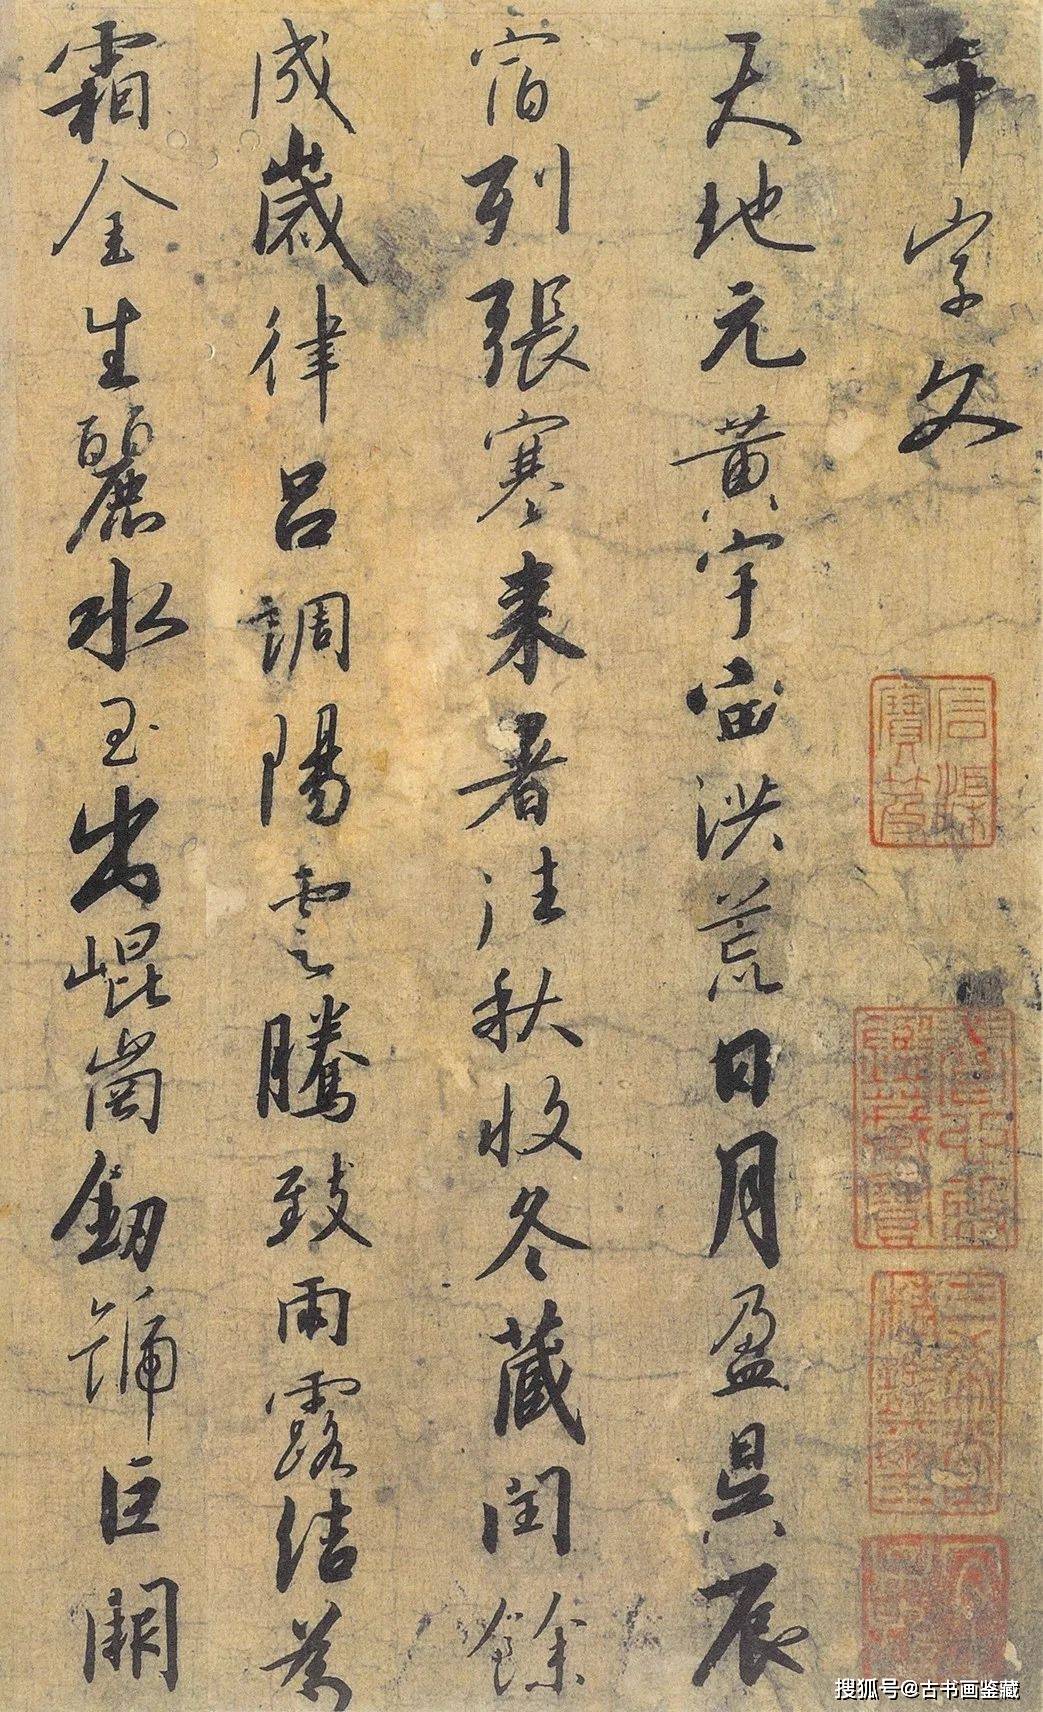 千字文
天地元黄宇宙洪荒日月盈昃辰
宿列張寒来暑往秋收冬藏閏餘
成歲律吕調陽雲騰致雨露结為
霜金生麗水玉出崐崗劒號巨闕
搜狐号@古书画鉴藏